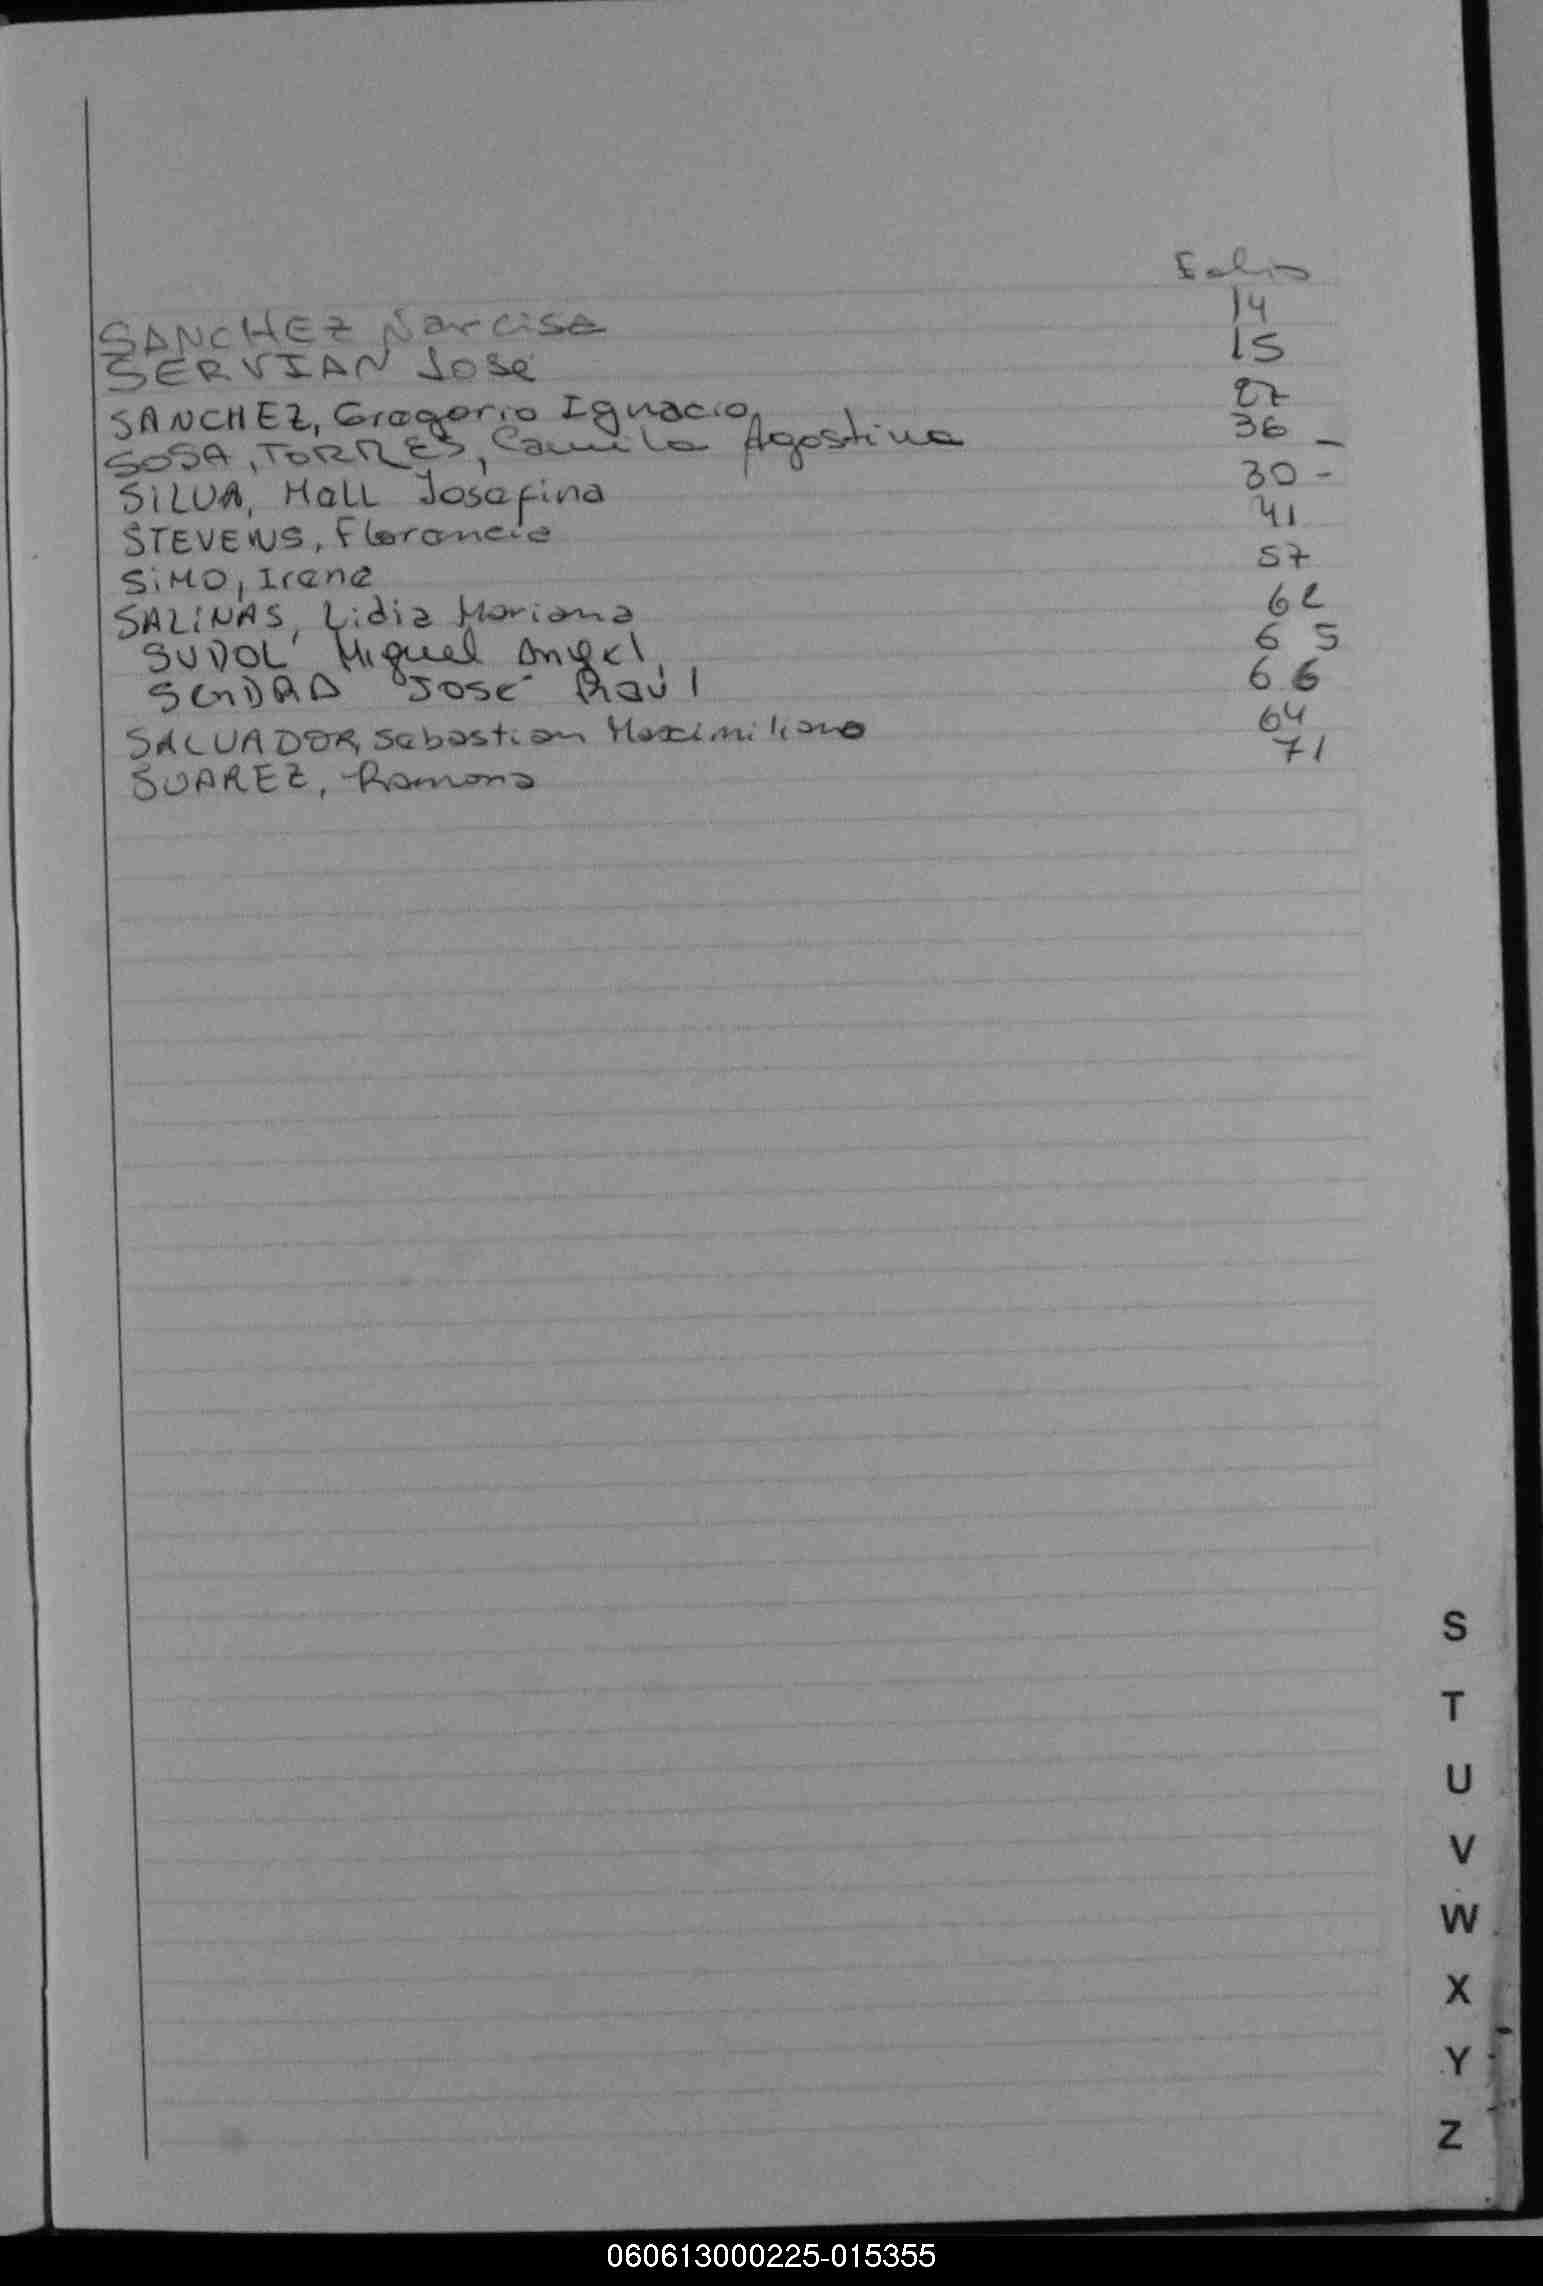 Folio
SANCHEZ Narcisa 14
SERVIAN José 15
SANCHEZ, Gregorio Ignacio 27
SOSA, TORRES, Camila Agostina 36 -
SILVA, Mall Josefina 30 -
STEVENS, Florencia 41
SiMO, Irene 57
SALINAS, Lidia Mariana 62
SUDOL Miguel Angel 65
JOSE Raúl 66
SALVADOR, Sebastian Maximiliano 64
SUAREZ, Ramona 71
S
T
U
V
W
X
Y
Z
060613000225-015355